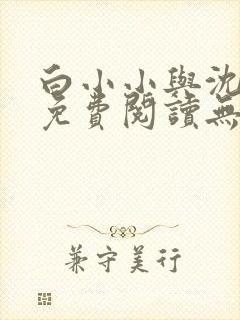 白小小與沈
免費閱讀無
兼守美行